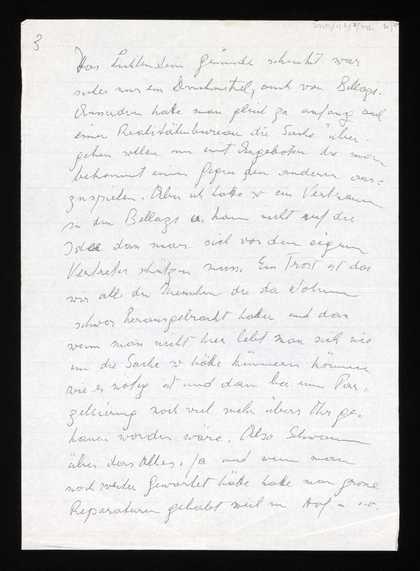 3
Das Luktendem gesunde scheint war
sicher nur ein Druckmittel, auch von Bellags.
Ausserdem hatte man gleich zu anfang auf
einer Realitätenbureau die Sache über-
geben sollen um mit Angeboten die man
bekommt einen gegen den anderen aus-
zuspielen. Aber ich hatte so ein Vertrauen
zu den Bellags u. kam nicht auf die
Idee dass man sich vor dem eigenen
Vertreter schützen muss. Ein Trost ist das
wir all die Freunden die da Wohnen
schwer herausgebracht hätten und das
wenn man nicht hier lebt man sich nie
um die Sache so hätte kümmern können
wie es nötig ist und dann bei einer Par-
zellierung noch viel mehr übers Ohr ge-
hauen worden wäre. Also Schwamm
über das Alles. Ja und wenn man
noch weiter gewartet hätte hätte man grosse
Reparaturen gehabt weil im Hof